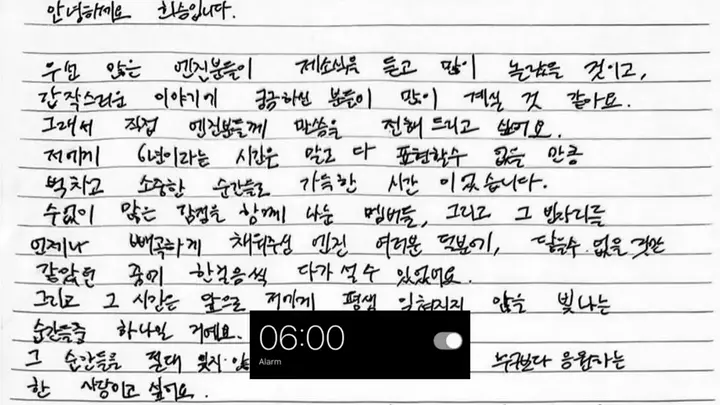 안녕하세요 희승입니다.
우선 많은 엔진분들이 제소식을 듣고 많이 놀랐을 것이고,
갑작스러운 이야기에 궁금하신 분들이 많이 계실 것 같아요.
그래서 직접 엔진분들께 말씀을 전해 드리고 싶어요.
저에게 6년이라는 시간은 말로 다 표현할수 없을 만큼
벅차고 소중한 순간들로 가득한 시간이었습니다.
수없이 많은 감정을 함께 나눈 멤버들, 그리고 그 빈자리를
언제나 빼곡하게 채워주신 엔진 여러분 덕분에, 닿을수 없을 것만
같았던 꿈에 한걸음씩 다가 설 수 있었어요.
그리고 그 시간은 앞으로 저에게 평생 잊혀지지 않을 빛나는
순간들중 하나일 거예요.
그 순간들을 절대 잊지 누구보다 응원하는
한 사람이고 싶어요.
06:00
Alarm